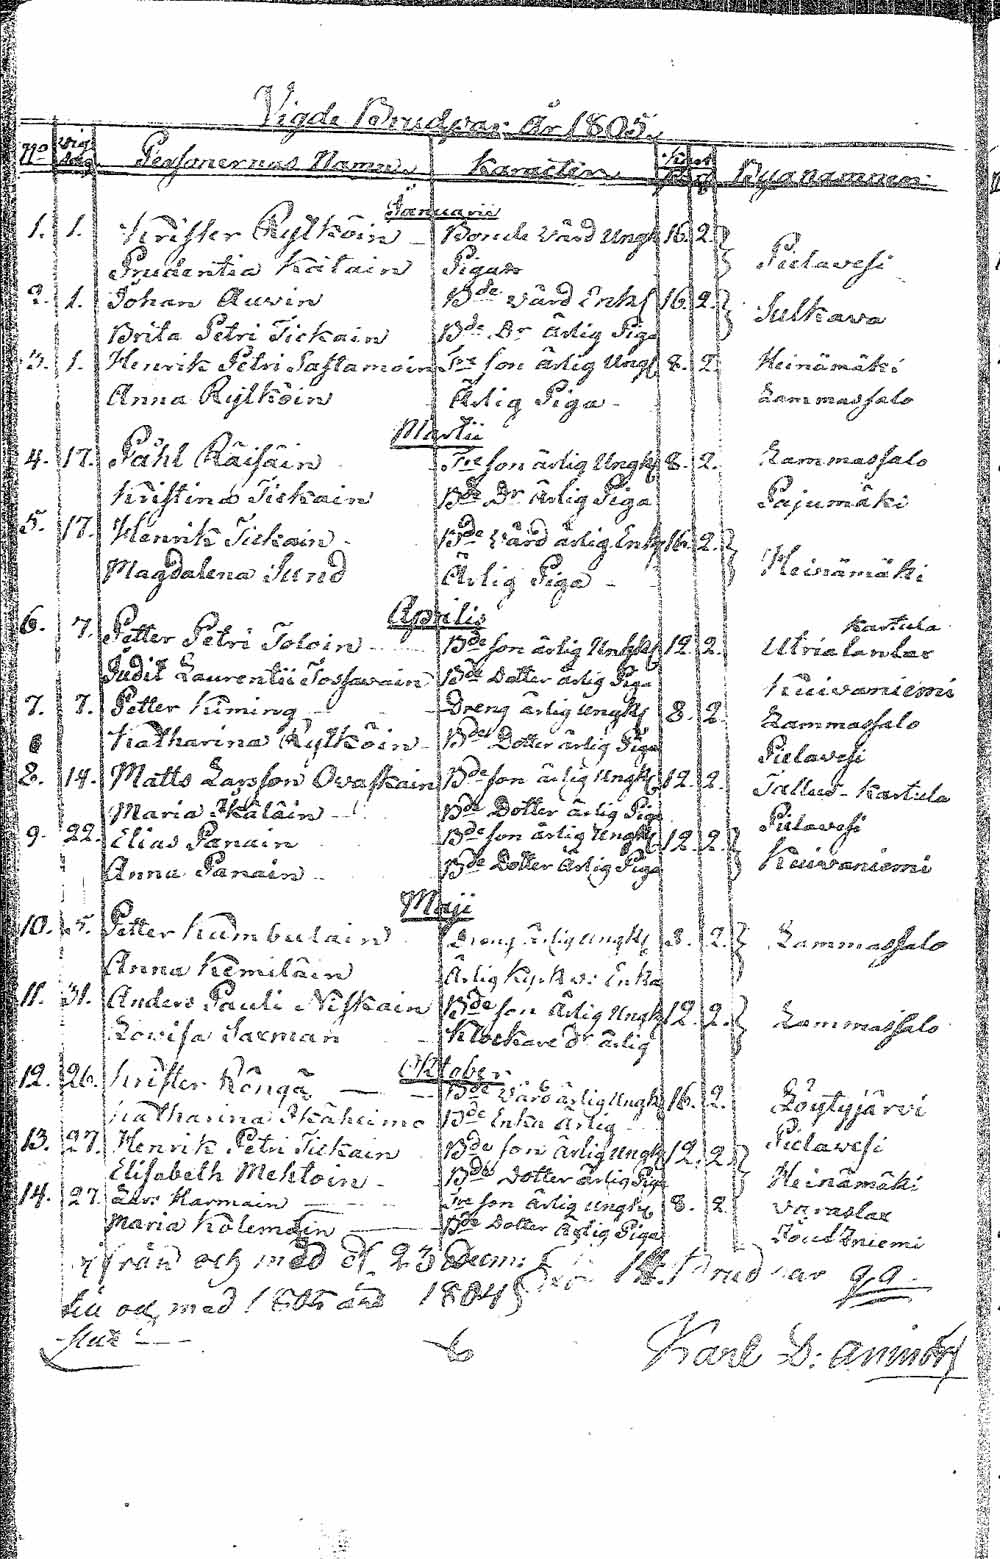 Vigde Brudpar År 1805.
No vig dag Personernas Namn Karacteir Byanamnen
Januarii
1. 1. Krister Rylköin Bonde Värd Ungk 16. 2. Pielavesi
Prudentia Kälain Pigan
2. 1. Johan Auvin Bde Värd Enkl 16. 2. Sulkava
Brita Petri Tickain Bde Dr Ärlig Piga
3. 1. Henrik Petri Sastamoin Tre son ärlig Ungk 8. 2. Heinämäki
Anna Rylköin Ärlig Piga Lammassalo
Martii
4. 17. Påhl Räisäin Tre son ärlig Ungk 8. 2. Lammassalo
Kristina Tickain Bde Dr Ärlig Piga Pajumäki
5. 17. Henrik Tickain Bde Värd ärlig Enkl 16. 2. Heinämäki
Magdalena Sund Ärlig Piga
Aprilis
6. 7. Petter Petri Toloin Bde son ärlig Ungk 12. 2. Kartula Utrialantax
Judit Laurentii Tossavain Bde Dotter ärlig Piga Kuivaniemi
7. 7. Petter Kiming Dreng ärlig Ungk 8. 2. Lammassalo
Katharina Rylköin Bde Dotter ärlig Piga Pielavesi
8. 14. Matts Larsson Ovaskain Bde son ärlig Ungk 12. 2. Tallus - Kartula
Maria Käläin Bde Dotter ärlig Piga Pielavesi
9. 22. Elias Panain Bde son ärlig Ungk 12. 2. Kuivaniemi
Anna Panain Bde Dotter Ärlig Piga
Maji
10. 5. Petter Kumbulain Dreng Ärlig Ungk 8. 2. Lammassalo
Anna Kemiläin Ärlig Enka
11. 31. Anders Pauli Niskain Bde son Ärlig Ungk 12. 2. Lammassalo
Lovisa Saxman Klockare dr ärlig
Oktober
12. 26. Krister Röngä Bde Värd ärlig Ungk 16. 2. Löytyjärvi
Katharina Bde Enka Ärlig
13. 27. Henrik Petri Tickain Bde son Ärlig Ungk 12. 2. Pielavesi
Elisabeth Mehtoin Bde Dotter ärlig Piga Heinämäki
14. 27. Harmain Tre son ärlig Ungk 8. 2. Varaslax
Maria Kolemain Bde Dotter Ärlig Piga
ifrån och med d 23 14. Brudpar
och med 1805 1804
Karl D: Aminoff